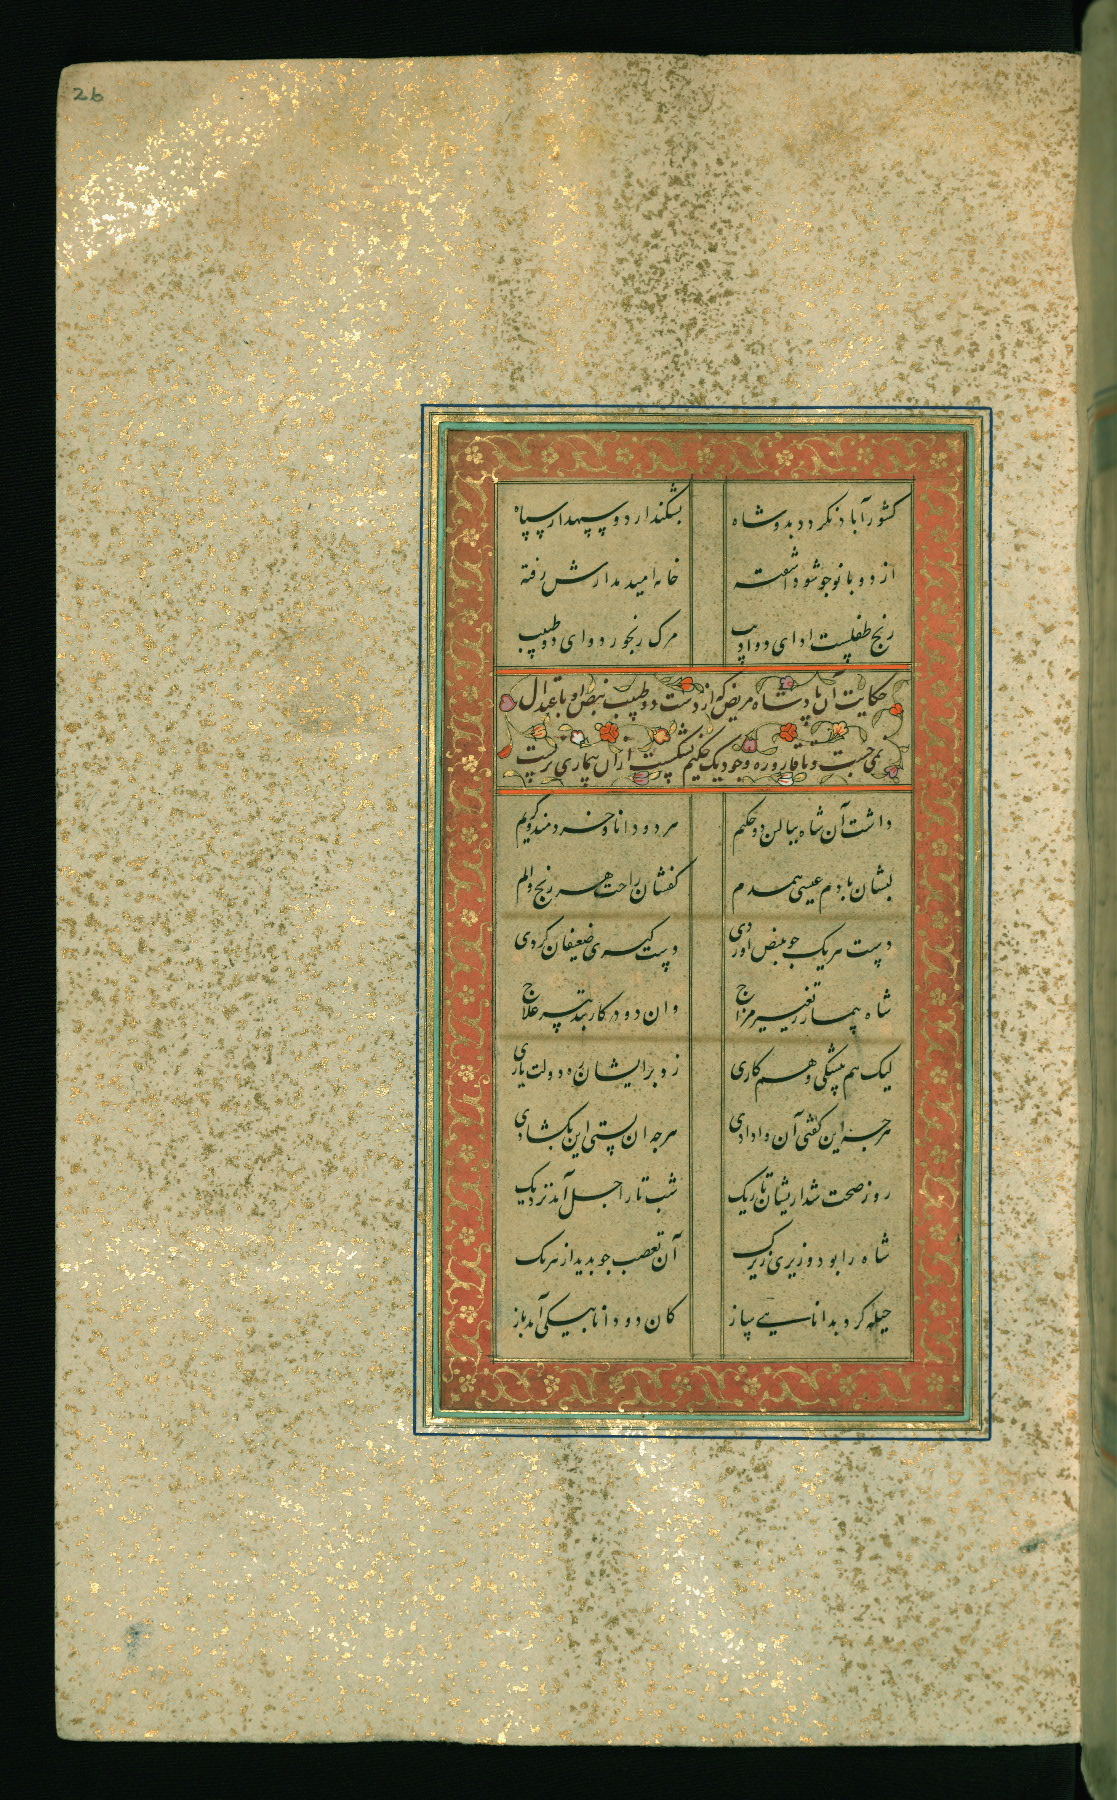 26
کشور آباد نگردد بدو شاه
بشکند از دو سپهدار سپاه
از دو بانو چو شود آشفته
خانه امید مدارش رفته
رنج طفلیست ادای دو ادیب
مرک رنجور دوای دو طبیب
حکایت آن پادشاه مریض که از دست دو طبیب نبض او باعتدال
نمی جست و تا قاروره وجود یک حکیم نشکست از آن بیماری نرست
داشت آن شاه ببالین دو حکیم
هر دو دانا و خردمند و کریم
لبشان بادم عیسی همدم
کفشان راحت هر رنج و الم
دست هر یک چو بنبض آوردی
دستگیری ضعیفان کردی
شاه بیمار ز تغییر مزاج
وان دو در کار بتدبیر علاج
لیک هم پیشگی و هم کاری
زد بر ایشان در دولت یاری
هرچه این گفتی آن وادادی
هرچه آن بستی این بگشادی
روز صحت شد ازیشان تاریک
شب تار اجل آمد نزدیک
شاه را بود وزیری زیرک
آن تعصب چو بدید از هر یک
حیله کرد بدانایی ساز
کان دو دانا بیکی آمد باز